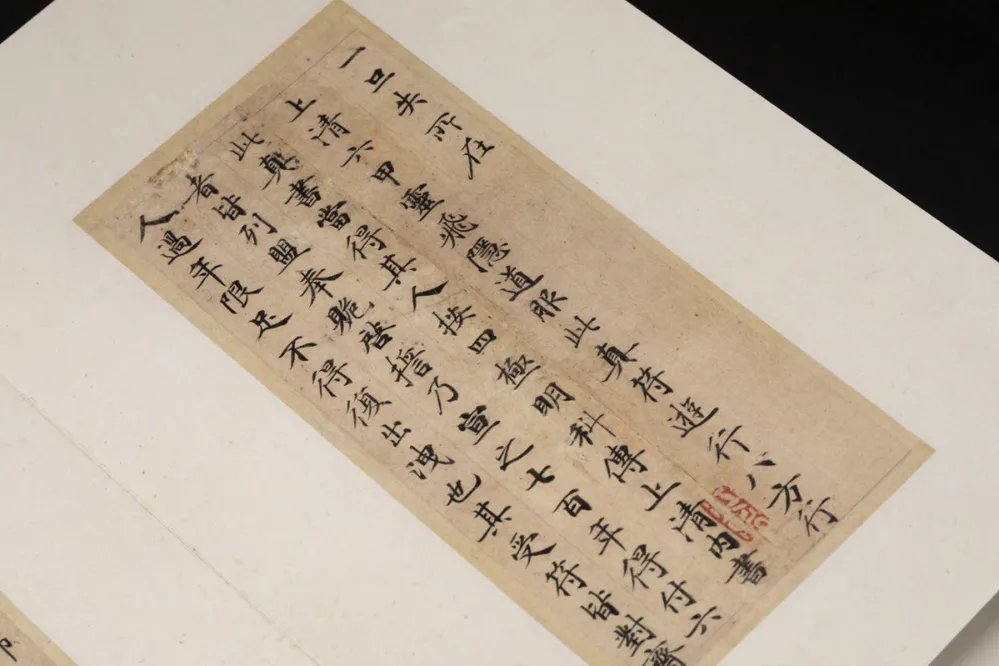 一旦失所在
上清六甲靈飛隱道服此真符遊行八方行
此真書當得其人按四極明科傳上清內書
者皆列盟奉䞈啓擔乃宣之七百年得付六
人過年限足不得復出洩也其受符皆對齋